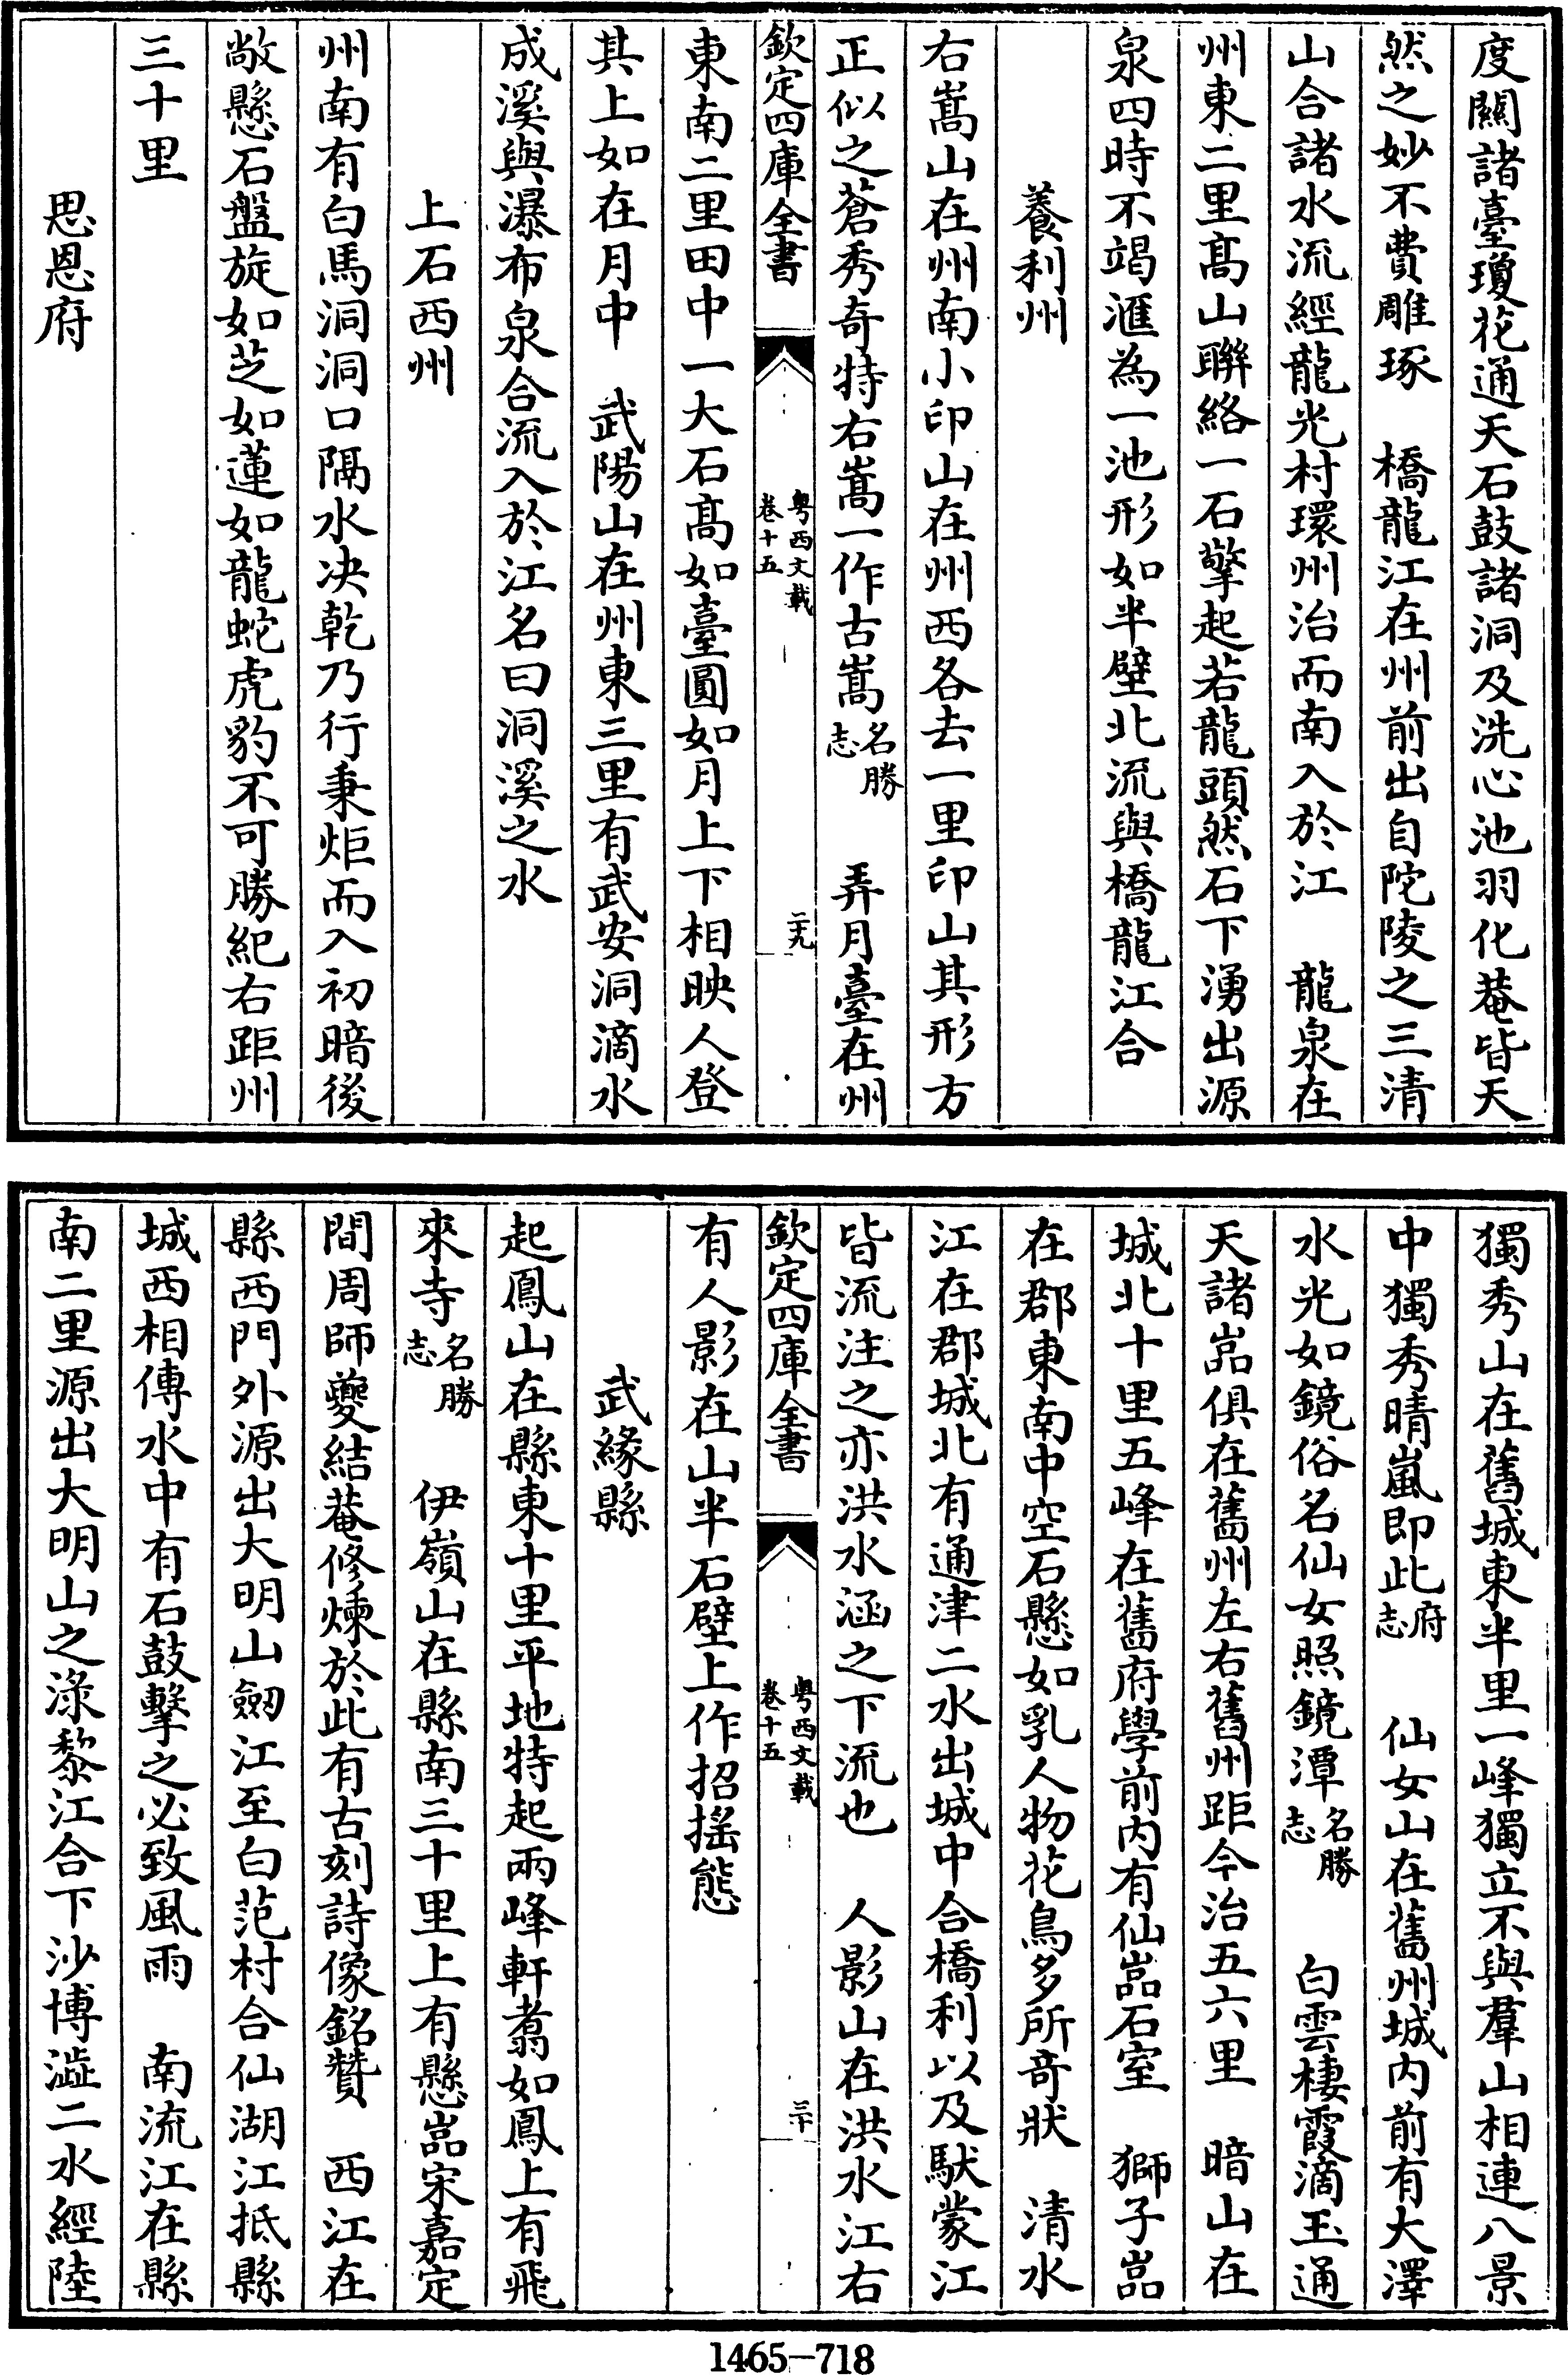 度關諸臺瓊花通天石鼓諸洞及洗心池羽化菴皆天
然之妙不費雕琢　橋龍江在州前出自陀陵之三清
山合諸水流經龍光村環州治而南入於江　龍泉在
州東二里髙山聯絡一石擎起若龍頭然石下湧出源
泉四時不竭滙為一池形如半壁北流與橋龍江合
養利州
右嵩山在州南小印山在州西各去一里印山其形方
正似之蒼秀奇特右嵩一作古嵩名勝志　弄月臺在州
欽定四庫全書　粤西文載卷十五　二十九
東南二里田中一大石髙如臺圓如月上下相映人登
其上如在月中　武陽山在州東三里有武安洞滴水
成溪與瀑布泉合流入於江名曰洞溪之水
上石西州
州南有白馬洞洞口隔水决乾乃行秉炬而入初暗後
敞懸石盤旋如芝如蓮如龍蛇虎豹不可勝紀右距州
三十里
思恩府
獨秀山在舊城東半里一峰獨立不與羣山相連八景
中獨秀晴嵐即此府志　仙女山在舊州城内前有大澤
水光如鏡俗名仙女照鏡潭名勝志　白雲棲霞滴玉通
天諸嵓俱在舊州左右舊州距今治五六里　暗山在
城北十里五峰在舊府學前内有仙嵓石室　獅子嵓
在郡東南中空石懸如乳人物花鳥多所竒狀　清水
江在郡城北有通津二水出城中合橋利以及馱蒙江
皆流注之亦洪水涵之下流也　人影山在洪水江右
欽定四庫全書　粤西文載卷十五　三十
有人影在山半石壁上作招摇態
武緣縣
起鳳山在縣東十里平地特起兩峰軒翥如鳳上有飛
來寺名勝志　伊嶺山在縣南三十里上有懸嵓宋嘉定
間周師夔結菴修煉於此有古刻詩像銘贊　西江在
縣西門外源出大明山劒江至白范村合仙湖江抵縣
城西相傳水中有石鼓擊之必致風雨　南流江在縣
南二里源出大明山之渌黎江合下沙博澁二水經陸
1465-718